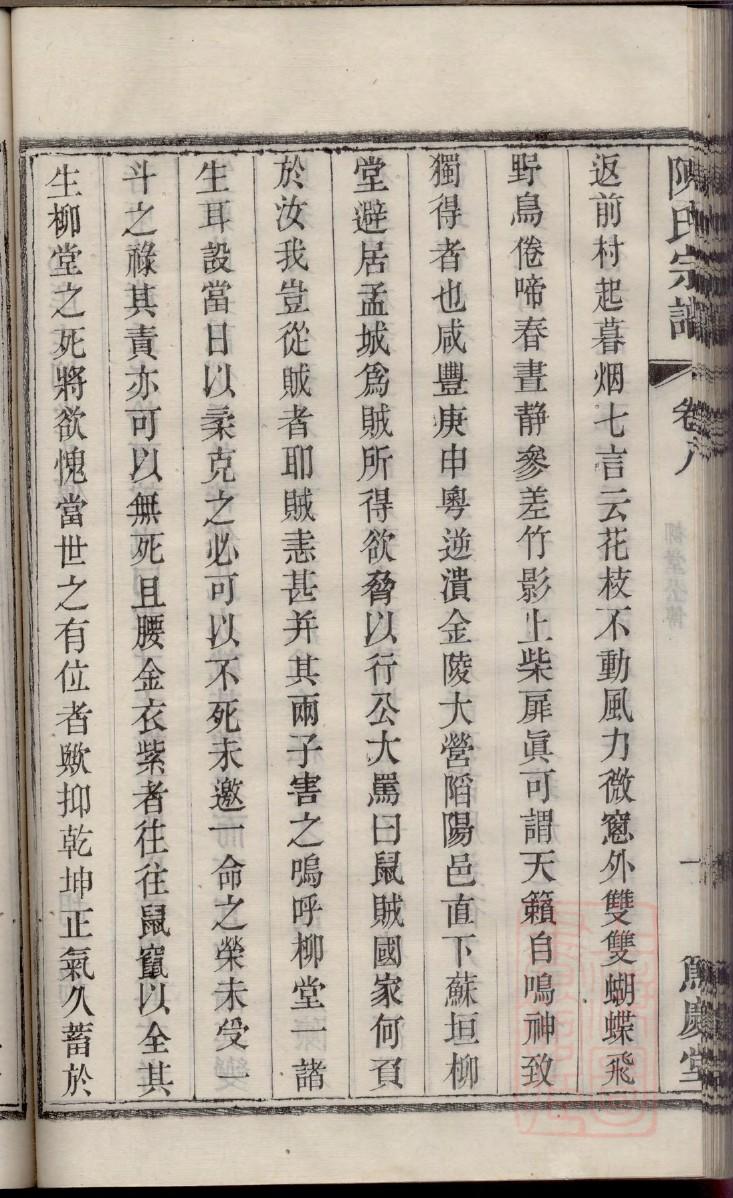 陳氏宗譜 卷八 一 篤慶堂
返前村起暮烟七言云花枝不動風力微窻外雙雙蝴蝶飛
野鳥倦啼春晝静參差竹影上柴扉眞可謂天籟自鳴神致
獨得者也咸豐庚申粵逆潰金陵大營陷陽邑直下蘇垣柳
堂避居孟城爲賊所得欲脅以行公大罵曰鼠賊國家何負
於汝我豈從賊者耶賊恚甚并其兩子害之嗚呼柳堂一諸
生耳設當日以柔克之必可以不死未邀一命之榮未受一
斗之祿其責亦可以無死且腰金衣紫者往往鼠竄以全其
生柳堂之死將欲愧當世之有位者歟抑乾坤正氣久蓄於